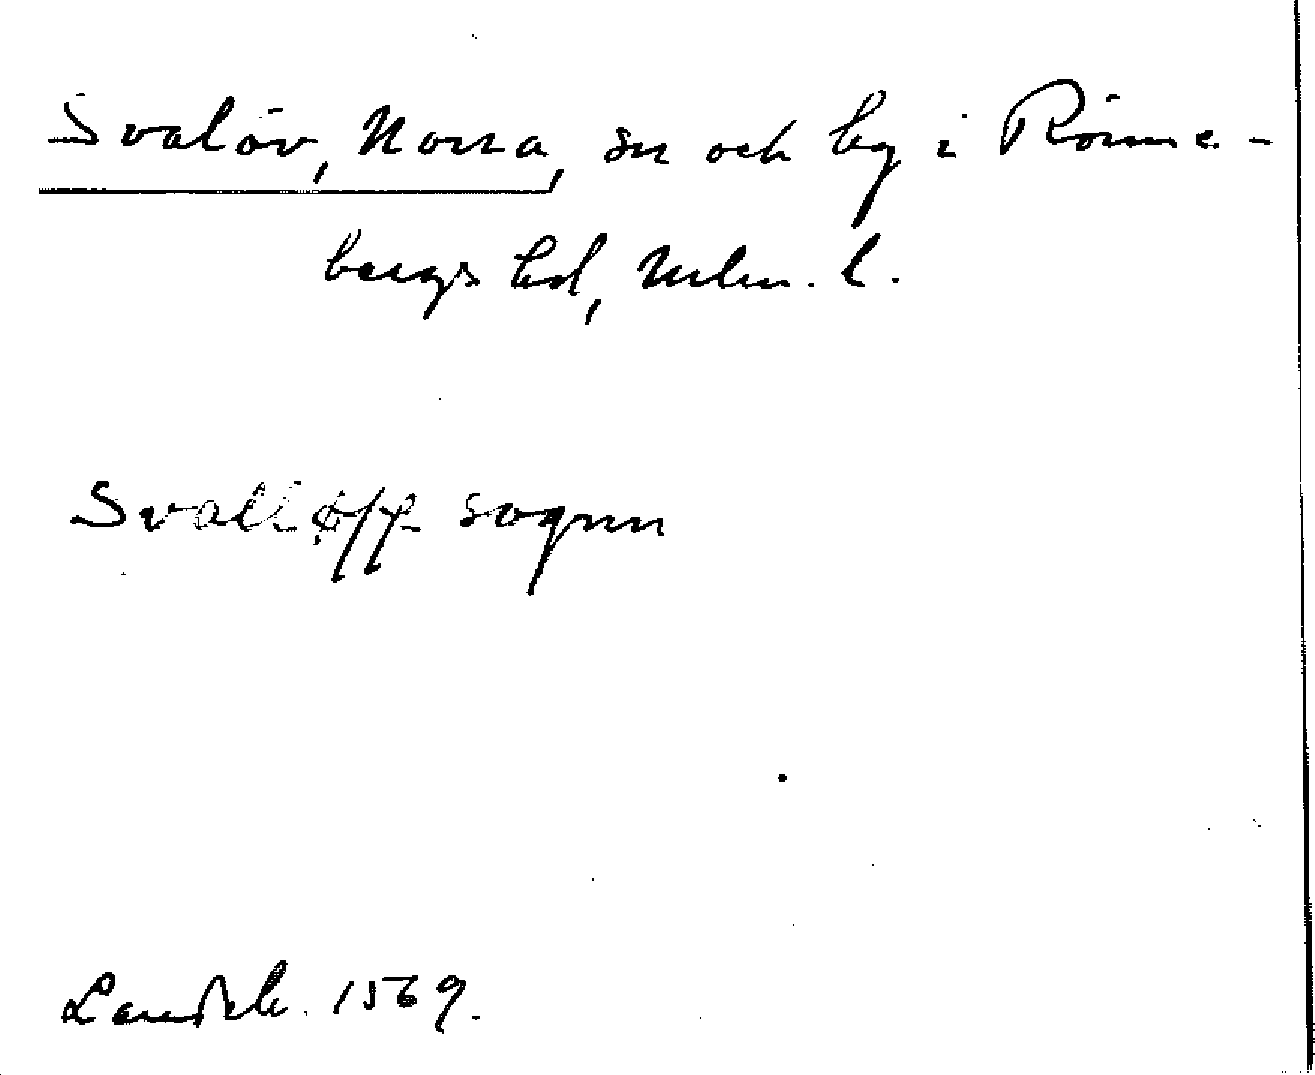 Svalöv, Norra, sn och by i Rönne-
bergs hd, Mlm. l.
Svalløff sognn
Landeb. 1569.